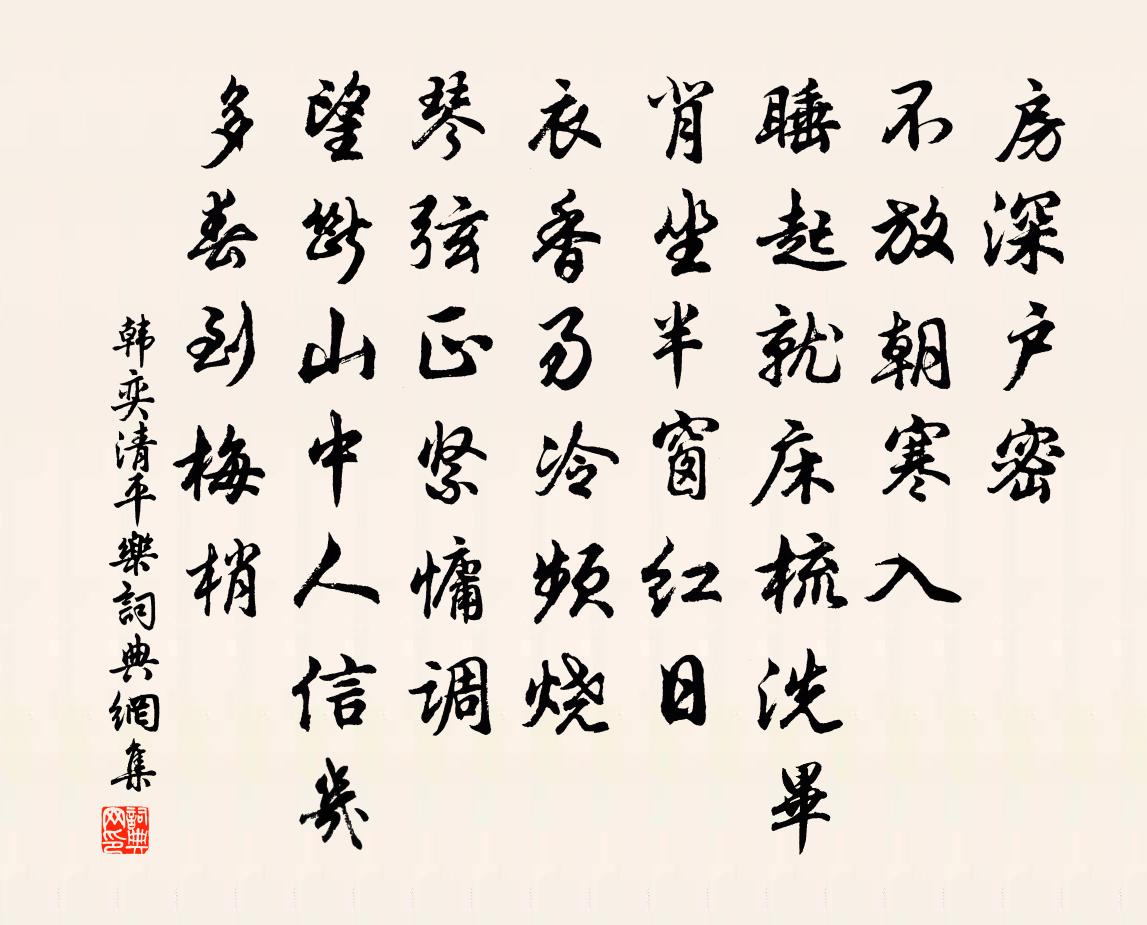 房深户密
不放朝寒入
睡起就床梳洗畢
背坐半窗红日
衣香易冷频烧
琴弦正紧慵调
望斷山中人信幾
多春到梅梢
韩奕清平樂詞典網集
詞典网印